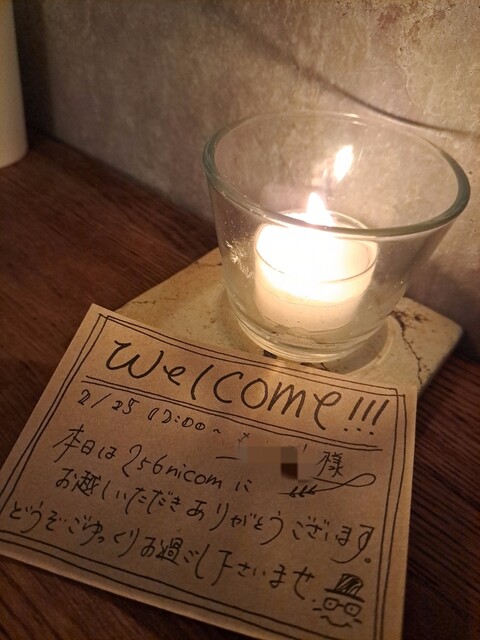 Welcome!!!
2/25 17:00~
様
本日は256nicomに
お越しいただきありがとうございます。
どうぞごゆっくりお過ごし下さいませ